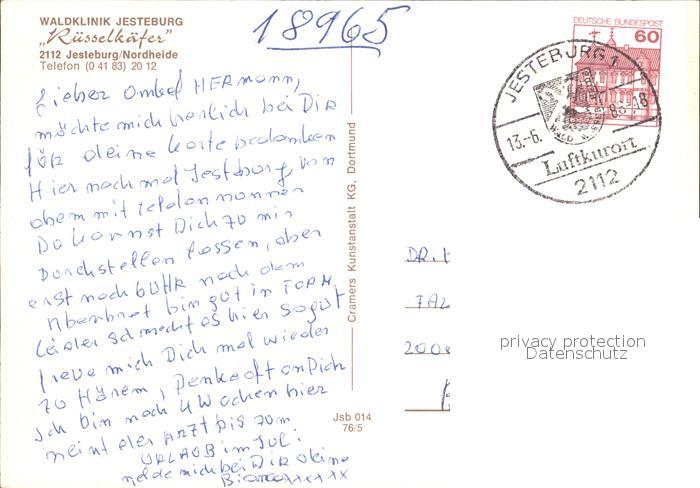 WALDKLINIK JESTEBURG
„Rüsselkäfer"
2112 Jesteburg/Nordheide
Telefon (0 41 83) 20 12
18965
DEUTSCHE BUNDESPOST
60
JESTEBURG 1
13.-6.
-18
Luftkurort
2112
Lieber Onkel HERmann,
möchte mich herlich bei DiR
füR deine Karte bedanken
Hier noch mal Jesteburg, von
oben mit telefon nummer
Du kannst Dich zu mir
Durchstellen lassen, aber
erst nach 6 UHR nach dem
Abenbrot bin gut in FORM.
Leider schmeckt es hier so gut
freue mich Dich mal wieder
zu Hören, Denke oft an Dich
ich bin noch 4 Wochen hier
meint der ARZT bis zum
URLAUB im Juli
melde mich bei DiR deine
Bianca xxxxx
Cramers Kunstanstalt KG, Dortmund
Jsb 014
76/5
DR.
privacy protection
Datenschutz